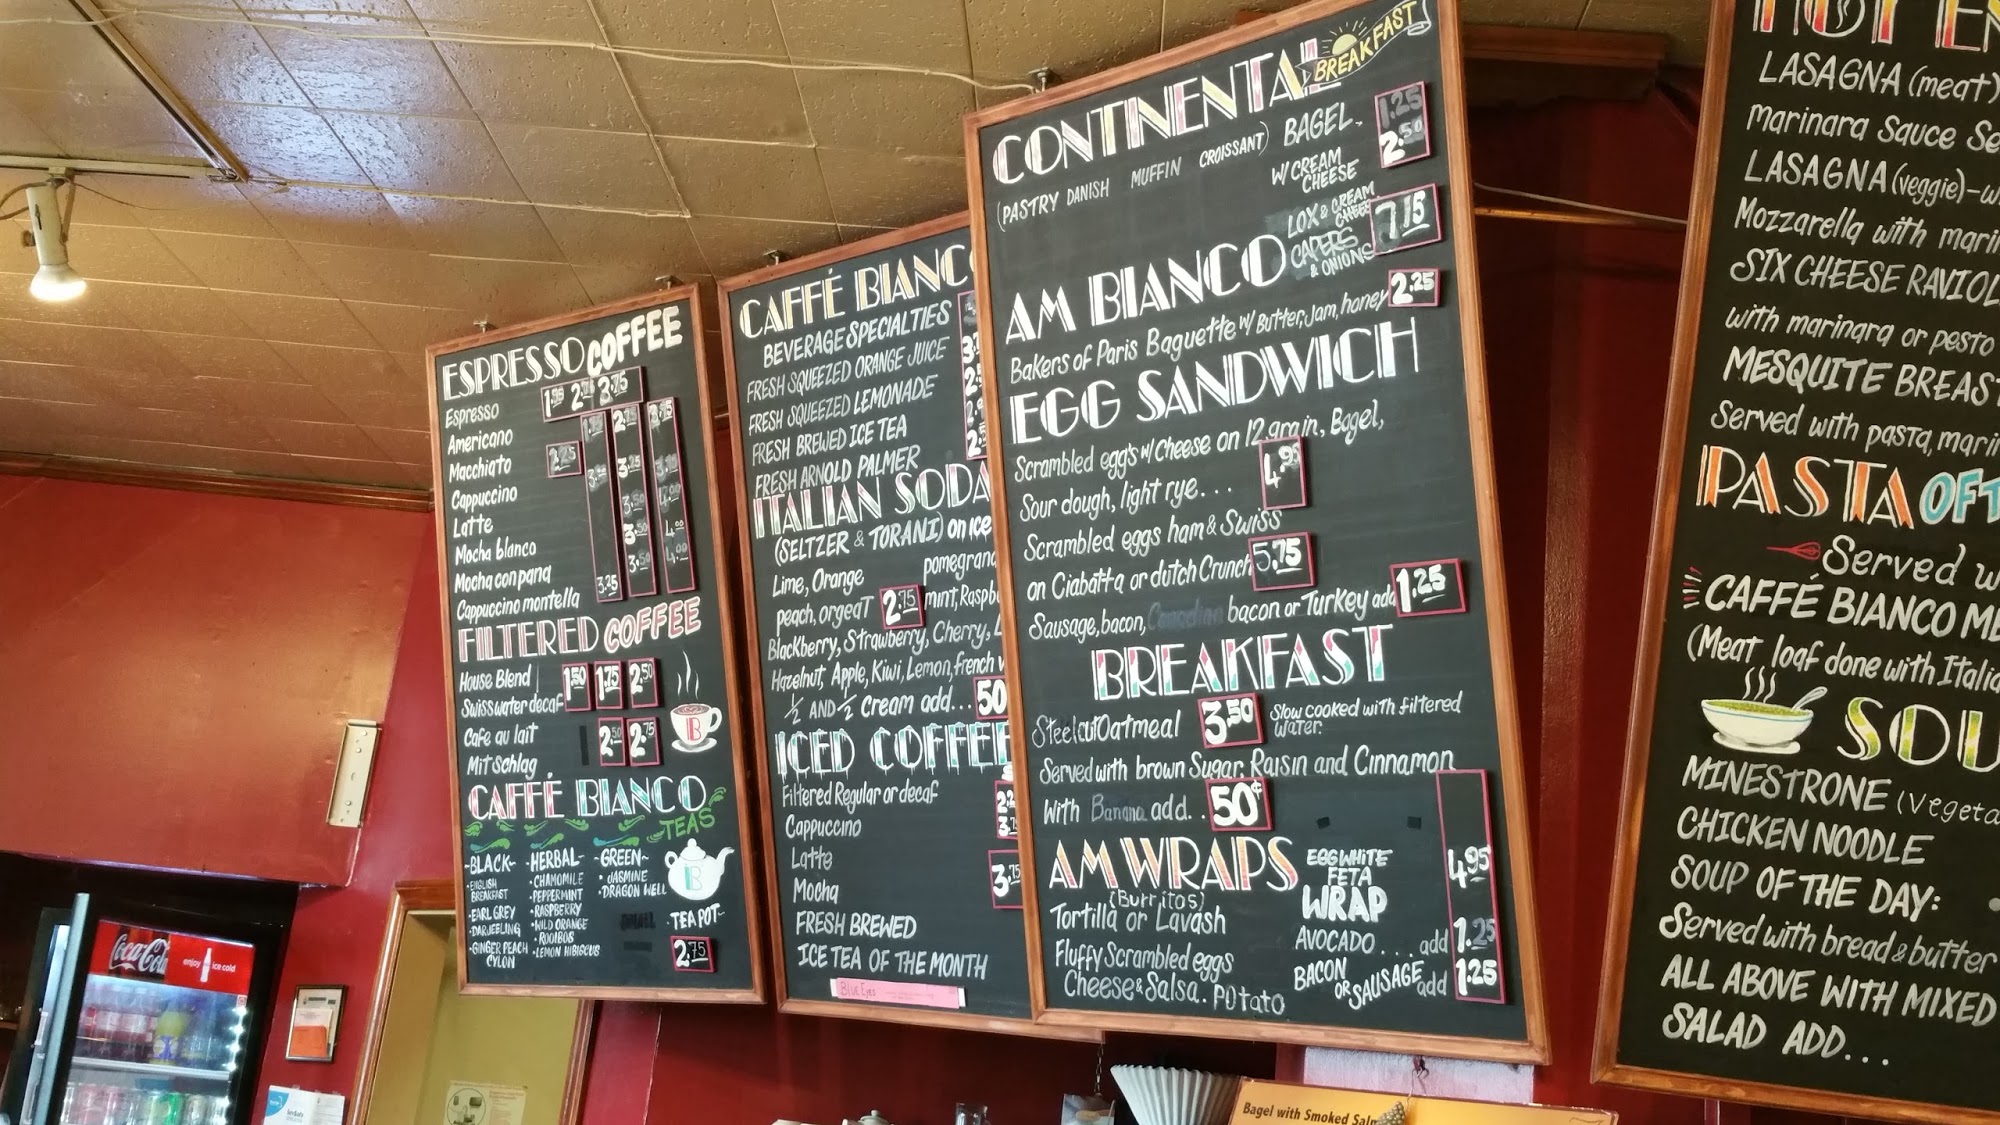 ESPRESSO COFFEE
Espresso
Americano
Macchiato 2.25
Cappuccino
Latte
Mocha blanco
Mocha con pana
Cappuccino montella 3.25
FILTERED COFFEE
House Blend 1.50 1.75 2.50
Swiss water decaf
Cafe au lait 2.50 2.75
Mit Schlag
B
CAFFÉ BIANCO
TEAS
-BLACK-
•ENGLISH
BREAKFAST
•EARL GREY
•DARJEELING
•GINGER PEACH
CYLON
-HERBAL-
•CHAMOMILE
•PEPPERMINT
•RASPBERRY
•WILD ORANGE
•ROOIBOS
•LEMON HIBISCUS
-GREEN-
•JASMINE
•DRAGON WELL
B
•TEA POT-
2.75
CAFFÉ BIANCO
BEVERAGE SPECIALTIES
FRESH SQUEEZED ORANGE JUICE
FRESH SQUEEZED LEMONADE
FRESH BREWED ICE TEA
FRESH ARNOLD PALMER
ITALIAN SODA
(SELTZER & TORANI) on ice
Lime, Orange
peach, orgeaT 2.75
mint, Raspb
Blackberry, Strawberry, Cherry,
Hazelnut, Apple, Kiwi, Lemon, french
½ AND ½ Cream add... 50
ICED COFFEE
Filtered Regular or decaf
Cappuccino
Latte
Mocha
FRESH BREWED
ICE TEA OF THE MONTH
BLUE EYES
CONTINENTAL BREAKFAST
(PASTRY DANISH MUFFIN CROISSANT) BAGEL. 1.25
W/ CREAM
CHEESE 2.50
LOX & CREAM
CHEESE
CAPERS
& ONIONS 7.15
AM BIANCO
Bakers of Paris Baguette w/ Butter, Jam, honey 2.25
EGG SANDWICH
Scrambled eggs w/ Cheese on 12 grain, Bagel,
Sour dough, light rye... 4.95
Scrambled eggs ham & Swiss
on Ciabatta or dutch Crunch 5.75
Sausage, bacon, Canadian bacon or Turkey add 1.25
BREAKFAST
Steel cut Oatmeal 3.50 Slow cooked with filtered
water.
Served with brown Sugar, Raisin and Cinnamon
With Banana add.. 50¢
AM WRAPS
(Burritos)
Tortilla or Lavash
Fluffy Scrambled eggs
Cheese & Salsa.. POtato
EGG WHITE
FETA
WRAP 4.95
AVOCADO... add 1.25
BACON
OR SAUSAGE add 1.25
LASAGNA (meat)
marinara Sauce Se
LASAGNA (veggie)-w
Mozzarella with mari
SIX CHEESE RAVIOL
with marinara or pesto
MESQUITE BREAS
Served with pasta, marin
PASTA OF T
Served w
CAFFÉ BIANCO ME
(Meat loaf done with Italia
SOU
MINESTRONE (Vegeta
CHICKEN NOODLE
SOUP OF THE DAY:
Served with bread & butter
ALL ABOVE WITH MIXED
SALAD ADD...
Coca-Cola
enjoy ice cold
Bagel with Smoked Sal